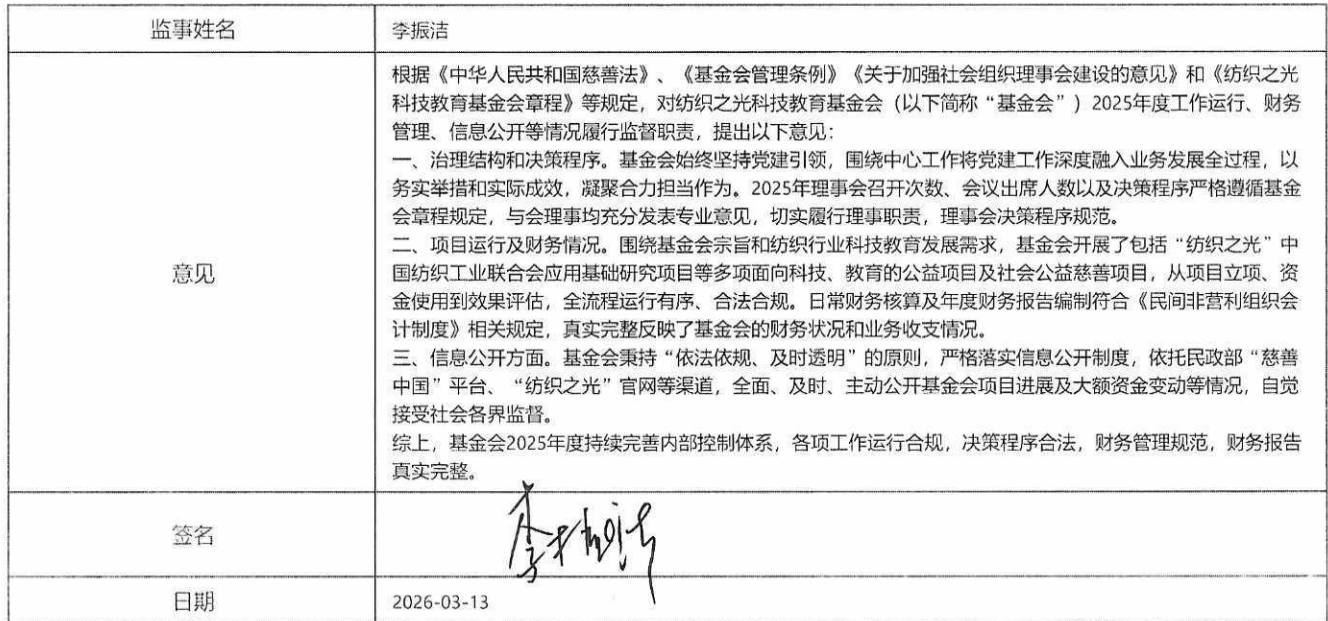 监事姓名
李振洁
意见
根据《中华人民共和国慈善法》、《基金会管理条例》《关于加强社会组织理事会建设的意见》和《纺织之光
科技教育基金会章程》等规定，对纺织之光科技教育基金会（以下简称“基金会”）2025年度工作运行、财务
管理、信息公开等情况履行监督职责，提出以下意见：
一、治理结构和决策程序。基金会始终坚持党建引领，围绕中心工作将党建工作深度融入业务发展全过程，以
务实举措和实际成效，凝聚合力担当作为。2025年理事会召开次数、会议出席人数以及决策程序严格遵循基金
会章程规定，与会理事均充分发表专业意见，切实履行理事职责，理事会决策程序规范。
二、项目运行及财务情况。围绕基金会宗旨和纺织行业科技教育发展需求，基金会开展了包括“纺织之光”中
国纺织工业联合会应用基础研究项目等多项面向科技、教育的公益项目及社会公益慈善项目，从项目立项、资
金使用到效果评估，全流程运行有序、合法合规。日常财务核算及年度财务报告编制符合《民间非营利组织会
计制度》相关规定，真实完整反映了基金会的财务状况和业务收支情况。
三、信息公开方面。基金会秉持“依法依规、及时透明”的原则，严格落实信息公开制度，依托民政部“慈善
中国”平台、“纺织之光”官网等渠道，全面、及时、主动公开基金会项目进展及大额资金变动等情况，自觉
接受社会各界监督。
综上，基金会2025年度持续完善内部控制体系，各项工作运行合规，决策程序合法，财务管理规范，财务报告
真实完整。
签名
李振洁
日期
2026-03-13